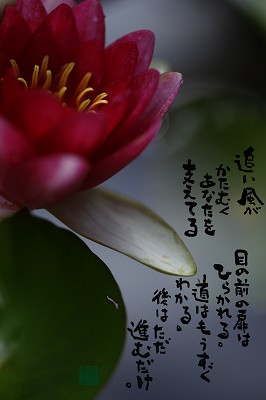 追い風が
かたむく
あなたを
支えてる
目の前の扉は
ひらかれる。
道はもうすぐ
わかる。
後はただ
進むだけ。